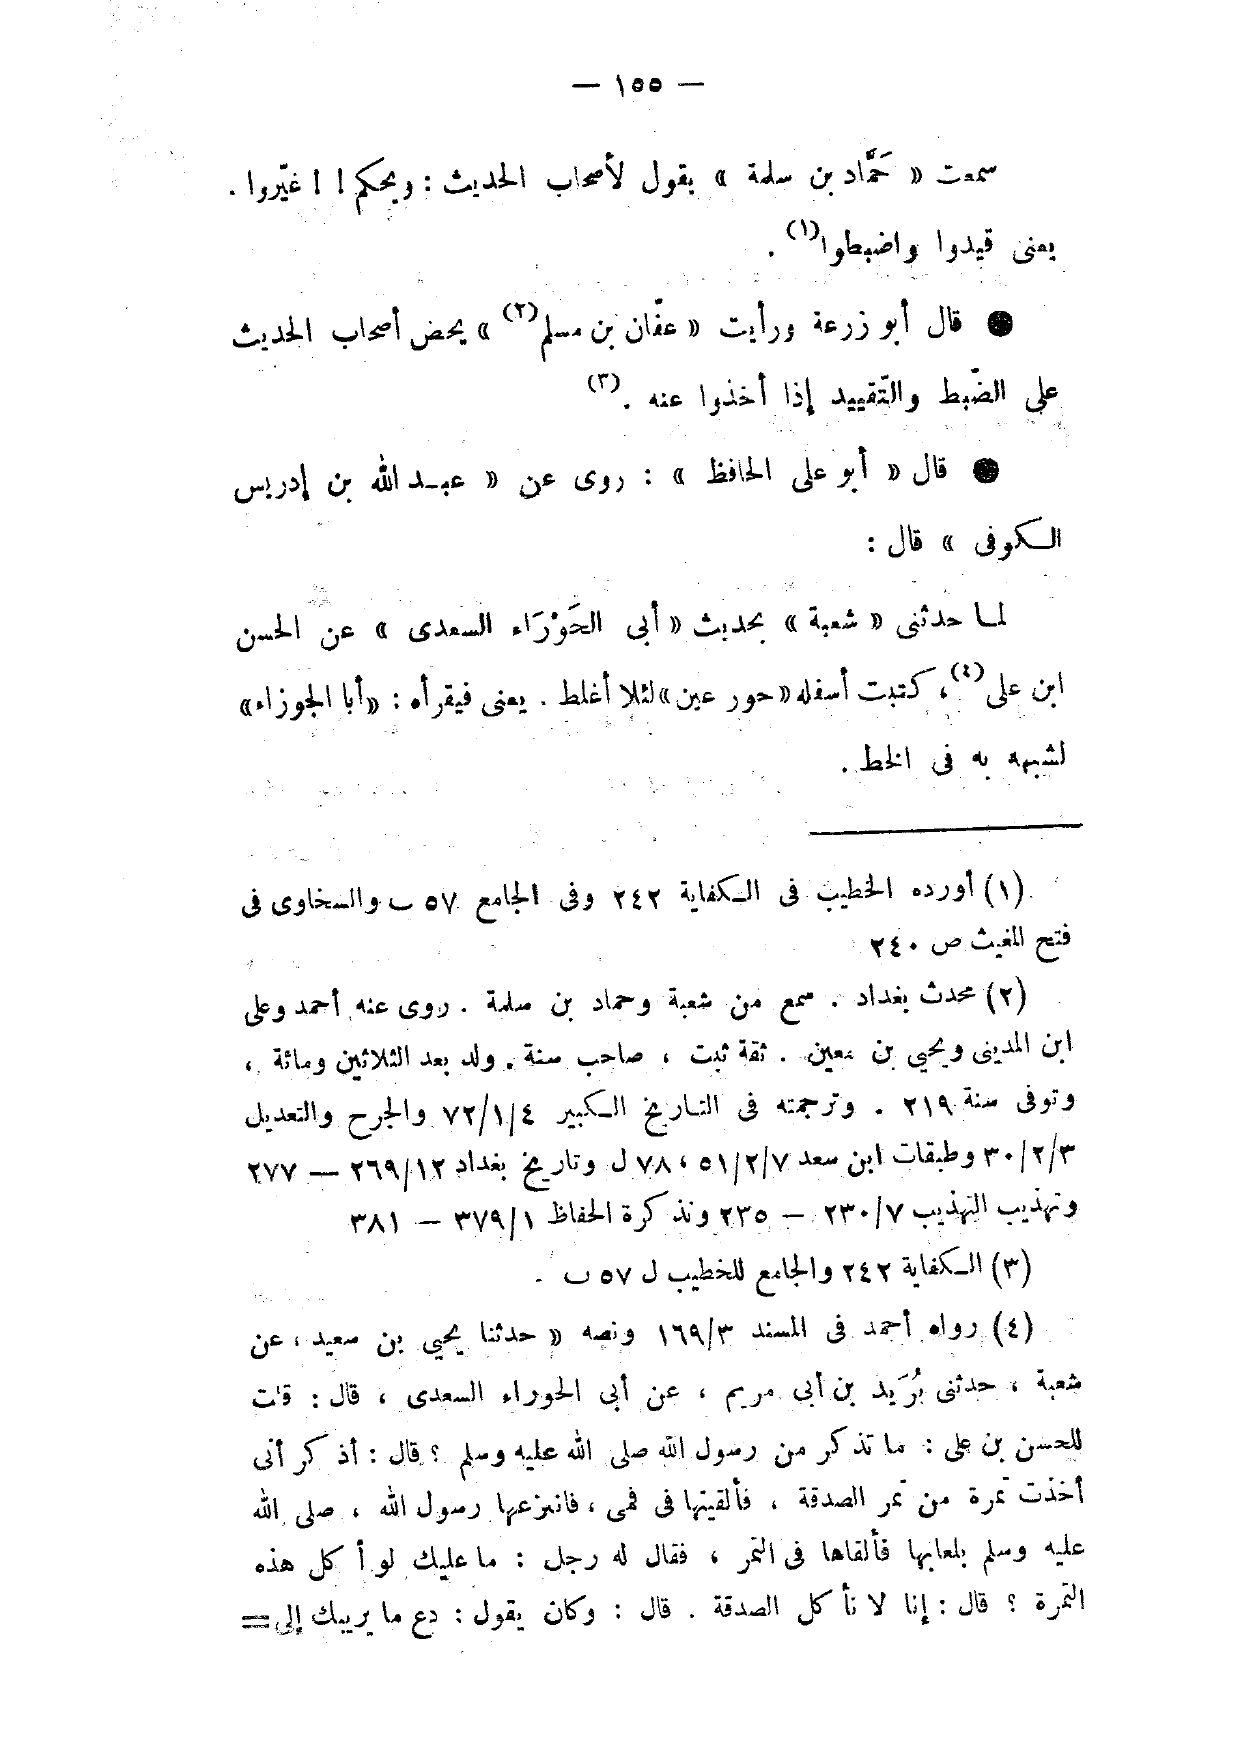 — ١٥٥ —
سمعت « حَمَّاد بن سلمة » يقول لأصحاب الحديث : ويحكم ! ! غيّروا .
يعنى قيدوا واضبطوا(١) .
● قال أبو زرعة ورأيت « عفّان بن مسلم(٢) » يحض أصحاب الحديث
على الضّبط والتّقييد إذا أخذوا عنه .(٣)
● قال « أبو على الحافظ » : روى عن « عبد الله بن إدريس
الكوفى » قال :
لما حدثنى « شعبة » بحديث « أبى الحَوْرَاء السعدى » عن الحسن
ابن على(٤) ، كتبت أسفله « حور عين » لئلا أغلط . يعنى فيقرأه : « أبا الجوزاء »
لشبهه به فى الخط .
(١) أورده الخطيب فى الكفاية ٢٤٢ وفى الجامع ٥٧ ب والسخاوى فى
فتح المغيث ص ٢٤٠
(٢) محدث بغداد . سمع من شعبة وحماد بن سلمة . روى عنه أحمد وعلى
ابن المدينى ويحيى بن معين . ثقة ثبت ، صاحب سنة . ولد بعد الثلاثين ومائة ،
وتوفى سنة ٢١٩ . وترجمته فى التاريخ الكبير ٧٢/١/٤ والجرح والتعديل
٣٠/٢/٣ وطبقات ابن سعد ٥١/٢/٧ ، ٧٨ ل وتاريخ بغداد ٢٦٩/١٢ — ٢٧٧
وتهذيب التهذيب ٢٣٠/٧ — ٢٣٥ وتذكرة الحفاظ ٣٧٩/١ — ٣٨١
(٣) الكفاية ٢٤٢ والجامع للخطيب ل ٥٧ ب .
(٤) رواه أحمد فى المسند ١٦٩/٣ ونصه « حدثنا يحيى بن سعيد ، عن
شعبة ، حدثنى بُرَيد بن أبى مريم ، عن أبى الحوراء السعدى ، قال : قلت
للحسن بن على : ما تذكر من رسول الله صلى الله عليه وسلم ؟ قال : أذكر أنى
أخذت تمرة من تمر الصدقة ، فألقيتها فى فمى ، فانتزعها رسول الله ، صلى الله
عليه وسلم بلعابها فألقاها فى التمر ، فقال له رجل : ما عليك لو أكل هذه
التمرة ؟ قال : إنا لا نأكل الصدقة . قال : وكان يقول : دع ما يريبك إلى =